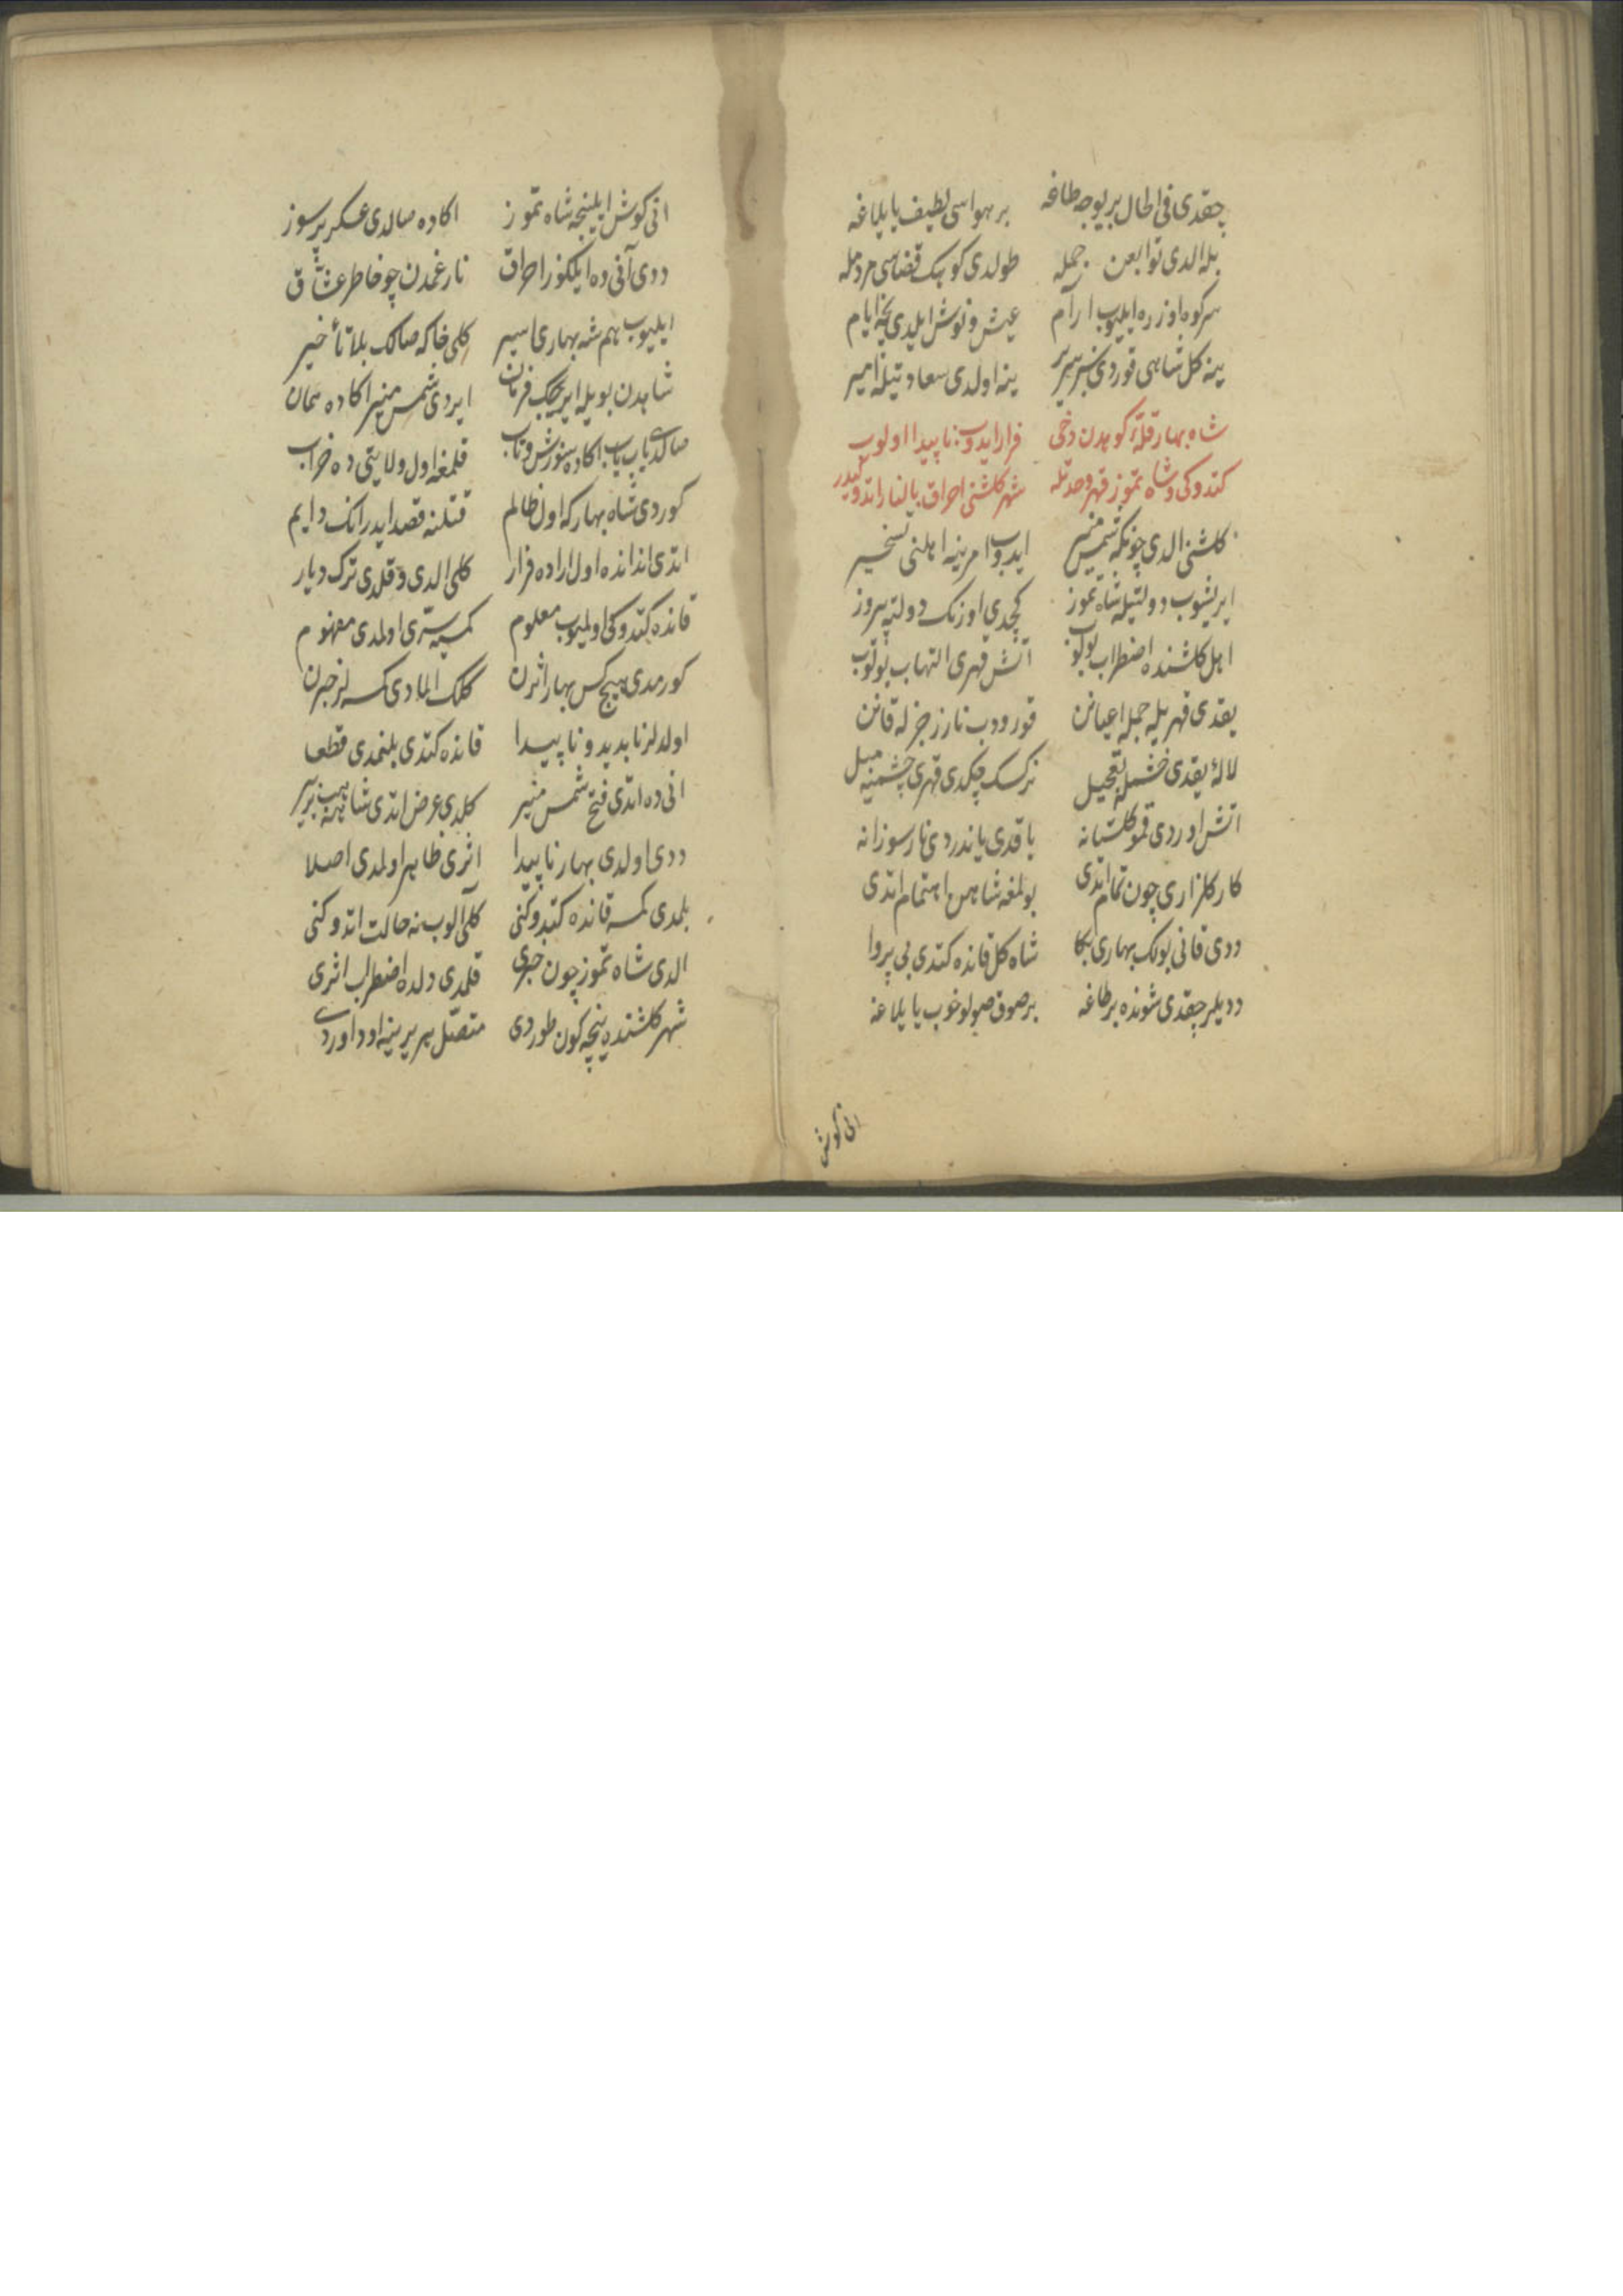 چقدی فی الحال بر یوجه طاغه بر هواسی لطیف یایلاغه
بله الدی توابعن جمله طولدی کوهک فضاسی مردمله
سر کوه اوزره ایلیوب ارام عیش و نوش ایلدی نچه ایام
ینه کل شاهی قوردی سریر ینه اولدی سعادتیله امیر
شاه بهار قلهٔ کوهدن دخی فرار ایدوب ناپیدا اولوب
کتدوکی و شاه تموز قهر و حدتله شهر کلشنی احراق بالنار اتدوکیدر
کلشنی الدی چونکه شمس منیر ایدوب امرینه اهلنی تسخیر
ایریشوب دولتیله شاه تموز کچدی اورنک دولته پیروز
اهل کلشنده اضطراب بولوب آتش قهری التهاب بولوب
یقدی قهریله جمله اعیانن قورودب نار زجرله قانن
لالهٔ یقدی خشمله تعجیل نرکسک چکدی قهری چشمنه میل
آتش اوردی قمو کلستانه یاقدی یاندردی نار سوزانه
کار کلزاری چون تمام اتدی بولمغه شاهن اهتمام اتدی
ددی قانی بولک بهاری بکا شاه کل قانده کتدی بی پروا
ددیلر چقدی شونده بر طاغه بر صوق صولو خوب یایلاغه
انی کوش
انی کوش ایلینجه شاه تموز اکا ده صالدی عسکر پرسوز
ددی آنی ده ایلکوز احراق نار غمدن چو خاطر عشاق
ایلیوب هم شه بهاری اسیر کلی خاکه صالک بلا تأخیر
شاهدن بویله ایریجک فرمان ایردی شمس منیر اکا ده همان
صالدی یاب یاب اکا ده سوزش و تاب قلمغه اول ولایتی ده خراب
کوردی شاه بهار که اول ظالم قتلنه قصد ایدر انک دایم
اتدی اندانده اول اراده فرار کلی الدی و قلدی ترک دیار
قانده کتدوکی اولمیوب معلوم کمسیه سری اولمدی مفهوم
کورمدی هیچ کس بهار اثرن کلک المادی کمسه لر خبرن
اولدلر نابدید و ناپیدا قانده کتدی بلنمدی قطعا
انی ده اتدی فتح شمس منیر کلدی عرض اتدی شاهنه بر بر
ددی اولدی بهار ناپیدا اثری ظاهر اولمدی اصلا
بلمدی کمسه قانده کتدوکنی کلی آلوب نه حالت اتدوکنی
الدی شاه تموز چون خبری قلمدی دلده اضطراب اثری
شهر کلشنده نیچه کون طوردی متصل هر یرینه اود اوردی